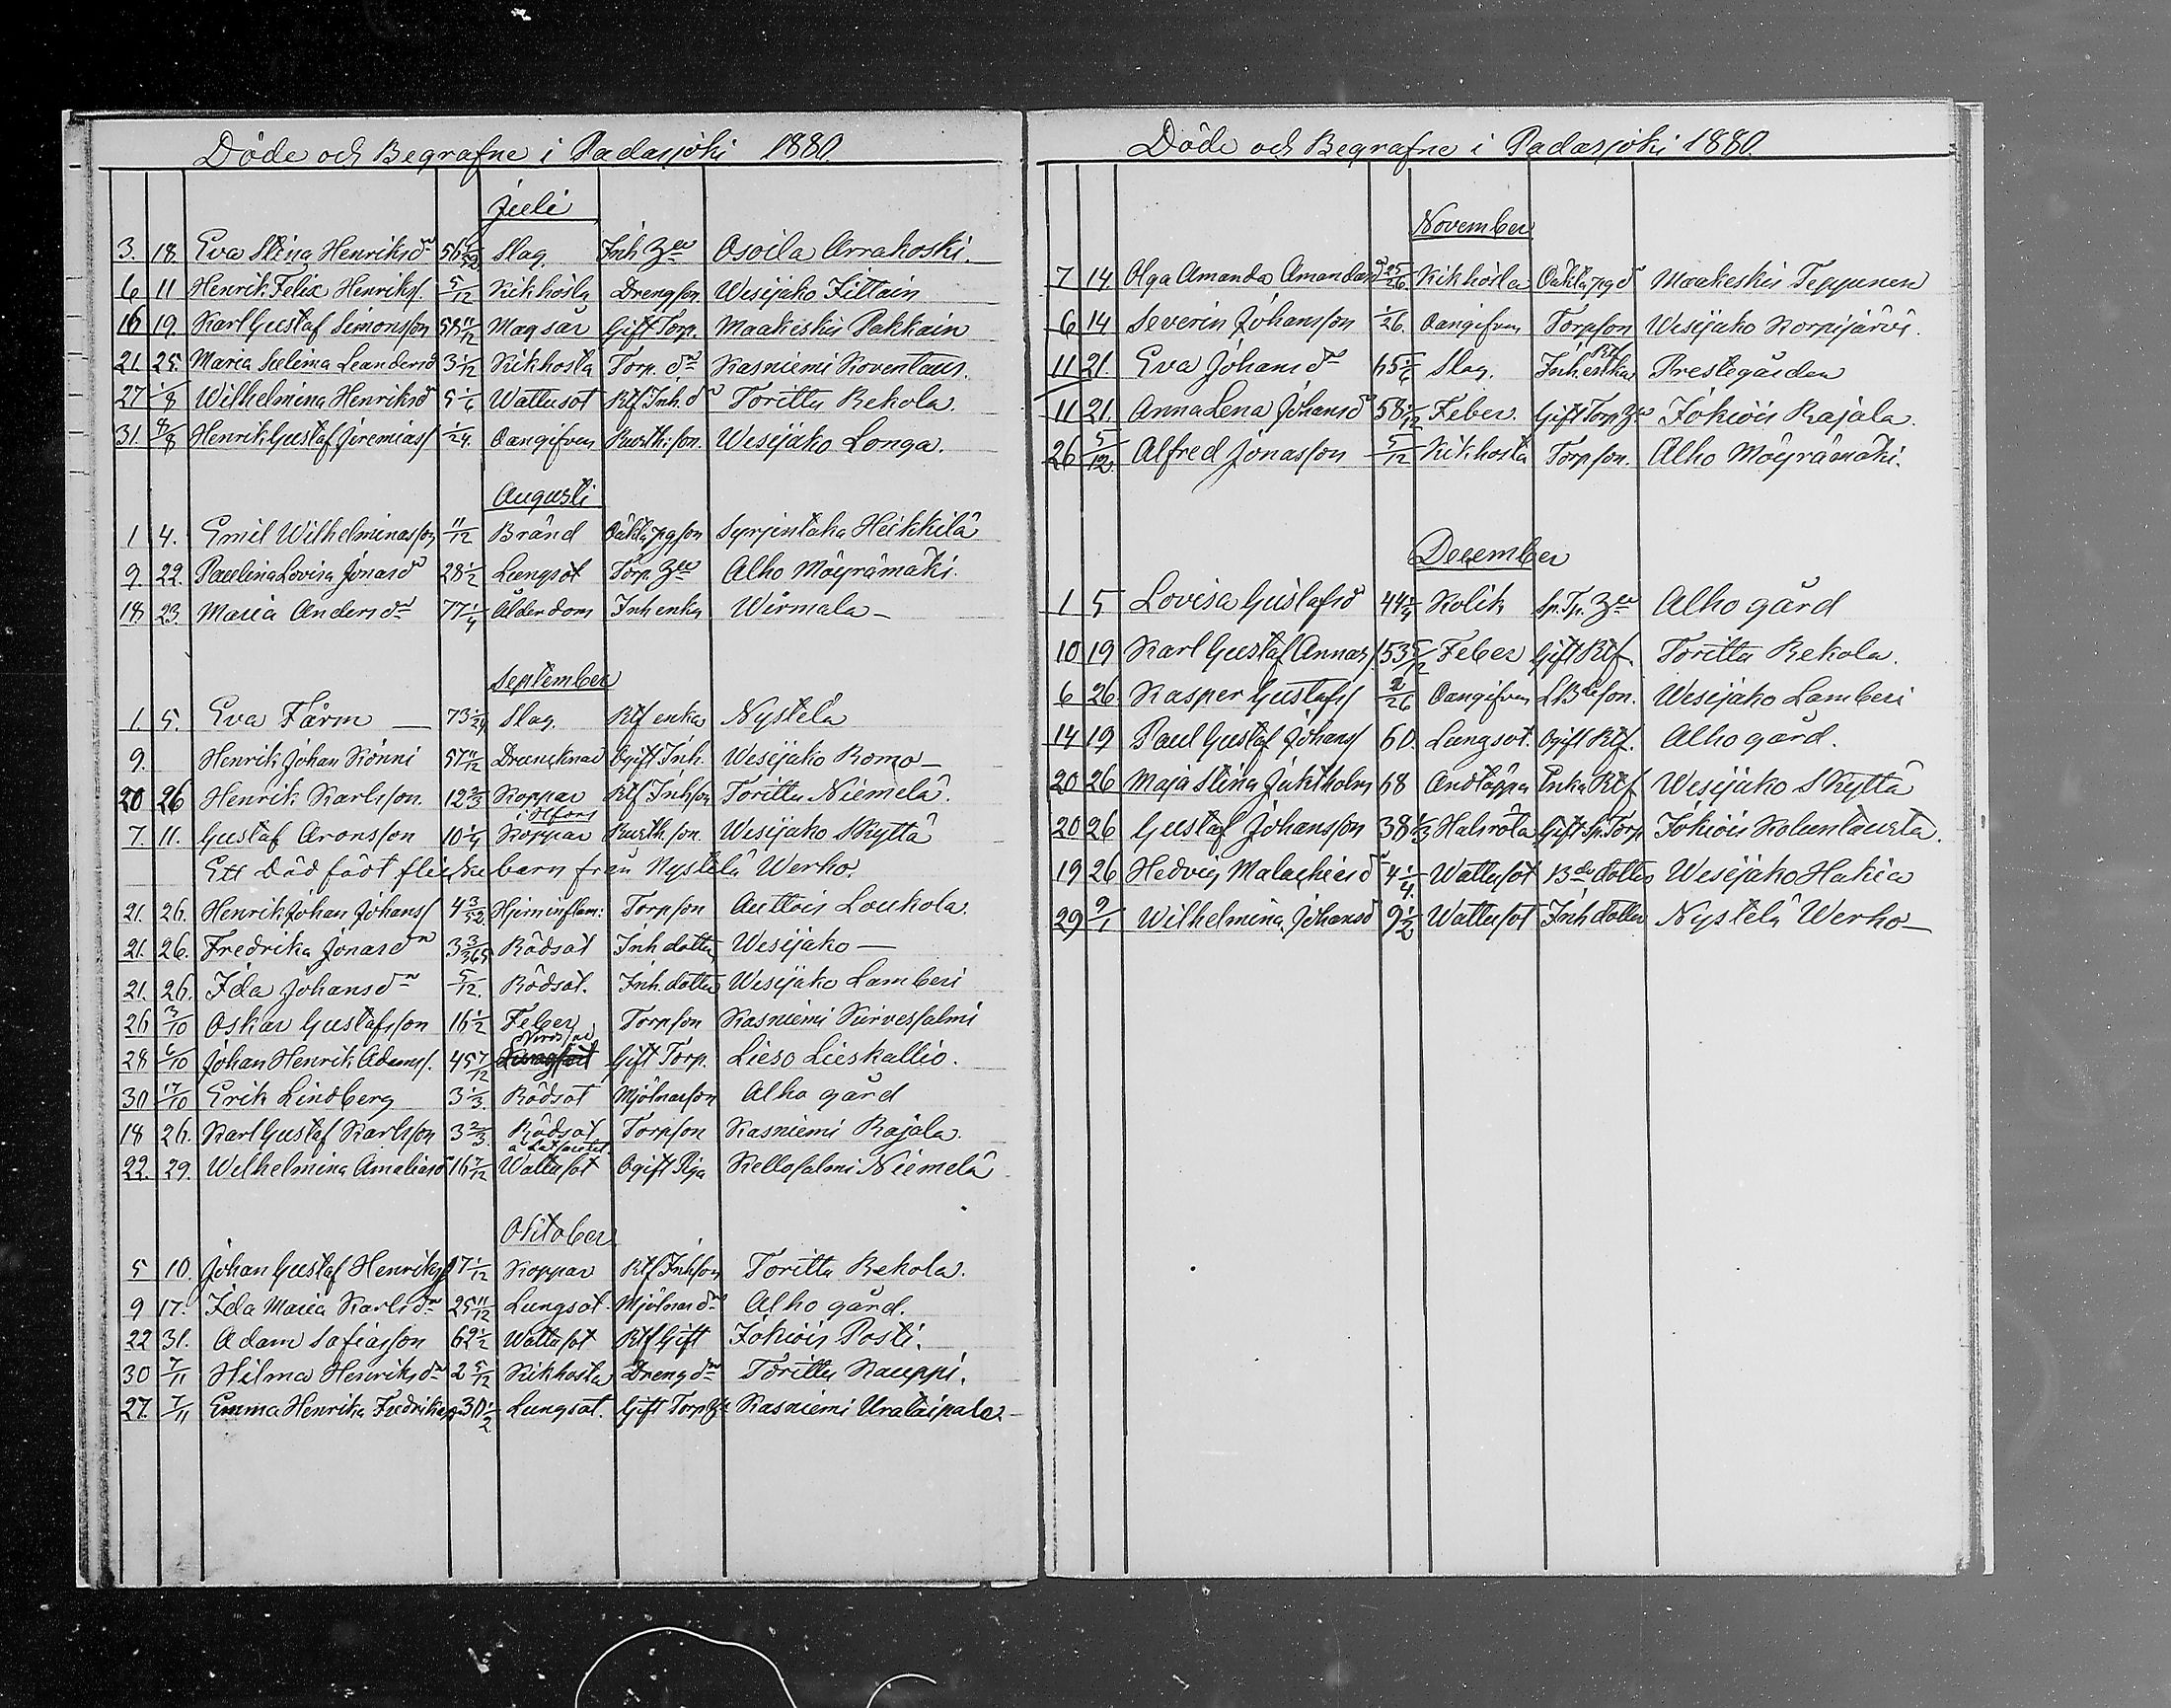 Döde och Begrafne i Padasjoki 1880.
Juli
3. 18. Eva Stina Henriksdr 56 Slag. Inh. Osoila Arrakoski.
6 11 Henrik Felix Henrikss. 5/12 Kikhosta Drengson. Wesijako Fillain
16 19 Karl Gustaf Simonsson 58 11/12 Magsår Gift Torp. Maakeskis Pakkain
21. 25. Maria Selima Leandersd 3 1/12 Kikhosta Torp. dr Kasniemi Koventaus.
27 1/8 Wilhelmina Henriksd 5 1/6 Wattusot Rtf Inh. d Toritta Rekola.
31. 4/8 Henrik Gustaf Jeremiass 1/24. Oangifven Rusth: son. Wesijako Longa.
Augusti
1 4. Emil Wilhelminasson 11/12 Bränd Oäkta pgson Syrjentaka Heikkilä
9. 22. Paulina Lovisa Jonasd 28 1/2 Lungsot Torp. Alho Möyrämäki.
18 23. Maria Andersdr 77 1/4 Ålderdom Inh enka Wirmala —
September
1. 5. Eva Färm — 73 1/24 Slag. Rtf enka Nystelä
9. Henrik Johan Rönni 57 11/12 Drunknad Ogift Inh. Wesijako Romo —
20 26 Henrik Karlsson. 12 2/3 Koppar Rtf Inhson Toritta Niemelä.
i Hfors
7. 11. Gustaf Aronsson 10 1/4 Koppar Rusth. son. Wesijako Skyttä
Ett dödfödt flickebarn från Nystelä Werho.
21. 26. Henrik Johan Johans 4 3/52 Hjerninflam: Torpson Auttois Loukola.
21. 26. Fredrika Jonasdr 3 3/365 Rödsot Inh dotter Wesijako —
21. 26. Ida Johansdr 5/12. Rödsot. Inh. dotter Wesijako Lamberi
26 3/10 Oskar Gustafsson 16 1/2 Feber Torpson Kasniemi Kirvessalmi
28 6/10 Johan Henrik Adams. 45 7/12 Lungsot Gift Torp. Lieso Lieskallio.
30 17/10 Erik Lindberg 3 1/3. Rödsot Mjölnarson Alho gård
18 26. Karl Gustaf Karlsson 3 2/3. Rödsot Torpson Kasniemi Rajala.
22. 29. Wilhelmina Amaliasd 16 7/12 Wattusot Ogift Piga Kellosalmi Niemelä
Oktober
5 10. Johan Gustaf Henriks 17 1/12 Koppar Rtf Inhson Toritta Rekola.
9 17. Ida Maria Karlsdr 25 11/12 Lungsot. Mjölnardr Alho gård.
22 31. Adam Safiasson 62 1/2 Wattusot Rtf Gift Jokiois Posti.
30 7/11 Hilma Henriksdr 2 5/12 Kikhosta Drengdr Toritta Kauppi.
27. 7/11 Emma Henrika Fredriks 30 1/2 Lungsot. Gift Torp Kasniemi Urataipale —
Döde och Begrafne i Padasjoki 1880.
November
7 14. Olga Amanda Amandasd 25/26 Kikhosta Oäkta pgd Maakeskis Teppunen
6 14 Severin Johansson 1/26. Oangifven Torpson Wesijako Korpijärvi.
Rtf
11 21. Eva Johansdr 65 1/6 Slag. Inh. enka Prestegården
11 21. Anna Lena Johansd 58 1/12 Feber. Gift Torp Jokiois Rajala.
26 5/12 Alfred Jonasson 5/12 Kikhosta Torpson. Alho Möyrämäki.
December
1 5 Lovisa Gustafsd 44 1/4 Kolik Alho gård
10 19 Karl Gustaf Annass 53 5/12 Feber Gift Rtf. Toritta Rekola.
6 26. Kasper Gustafs 2/26 Oangifven son. Wesijako Lamberi
14 19 Paul Gustaf Johans 60. Lungsot. Ogift Rtf. Alho gård.
20 26 Maja Stina Juktholm 68 Andtäppa Enka Rtf Wesijako Skyttä
20 26 Gustaf Johansson 38 1/3 Halsröta Gift Sp. Torp. Jokiois Koluntausta.
19 26 Hedvig Malachiasd 4 1/4. Wattusot Bdedotter Wesijako Hakia
29 9/1 Wilhelmina Johansd 9 1/2 Wattusot Inh dotter Nystelä Werho —